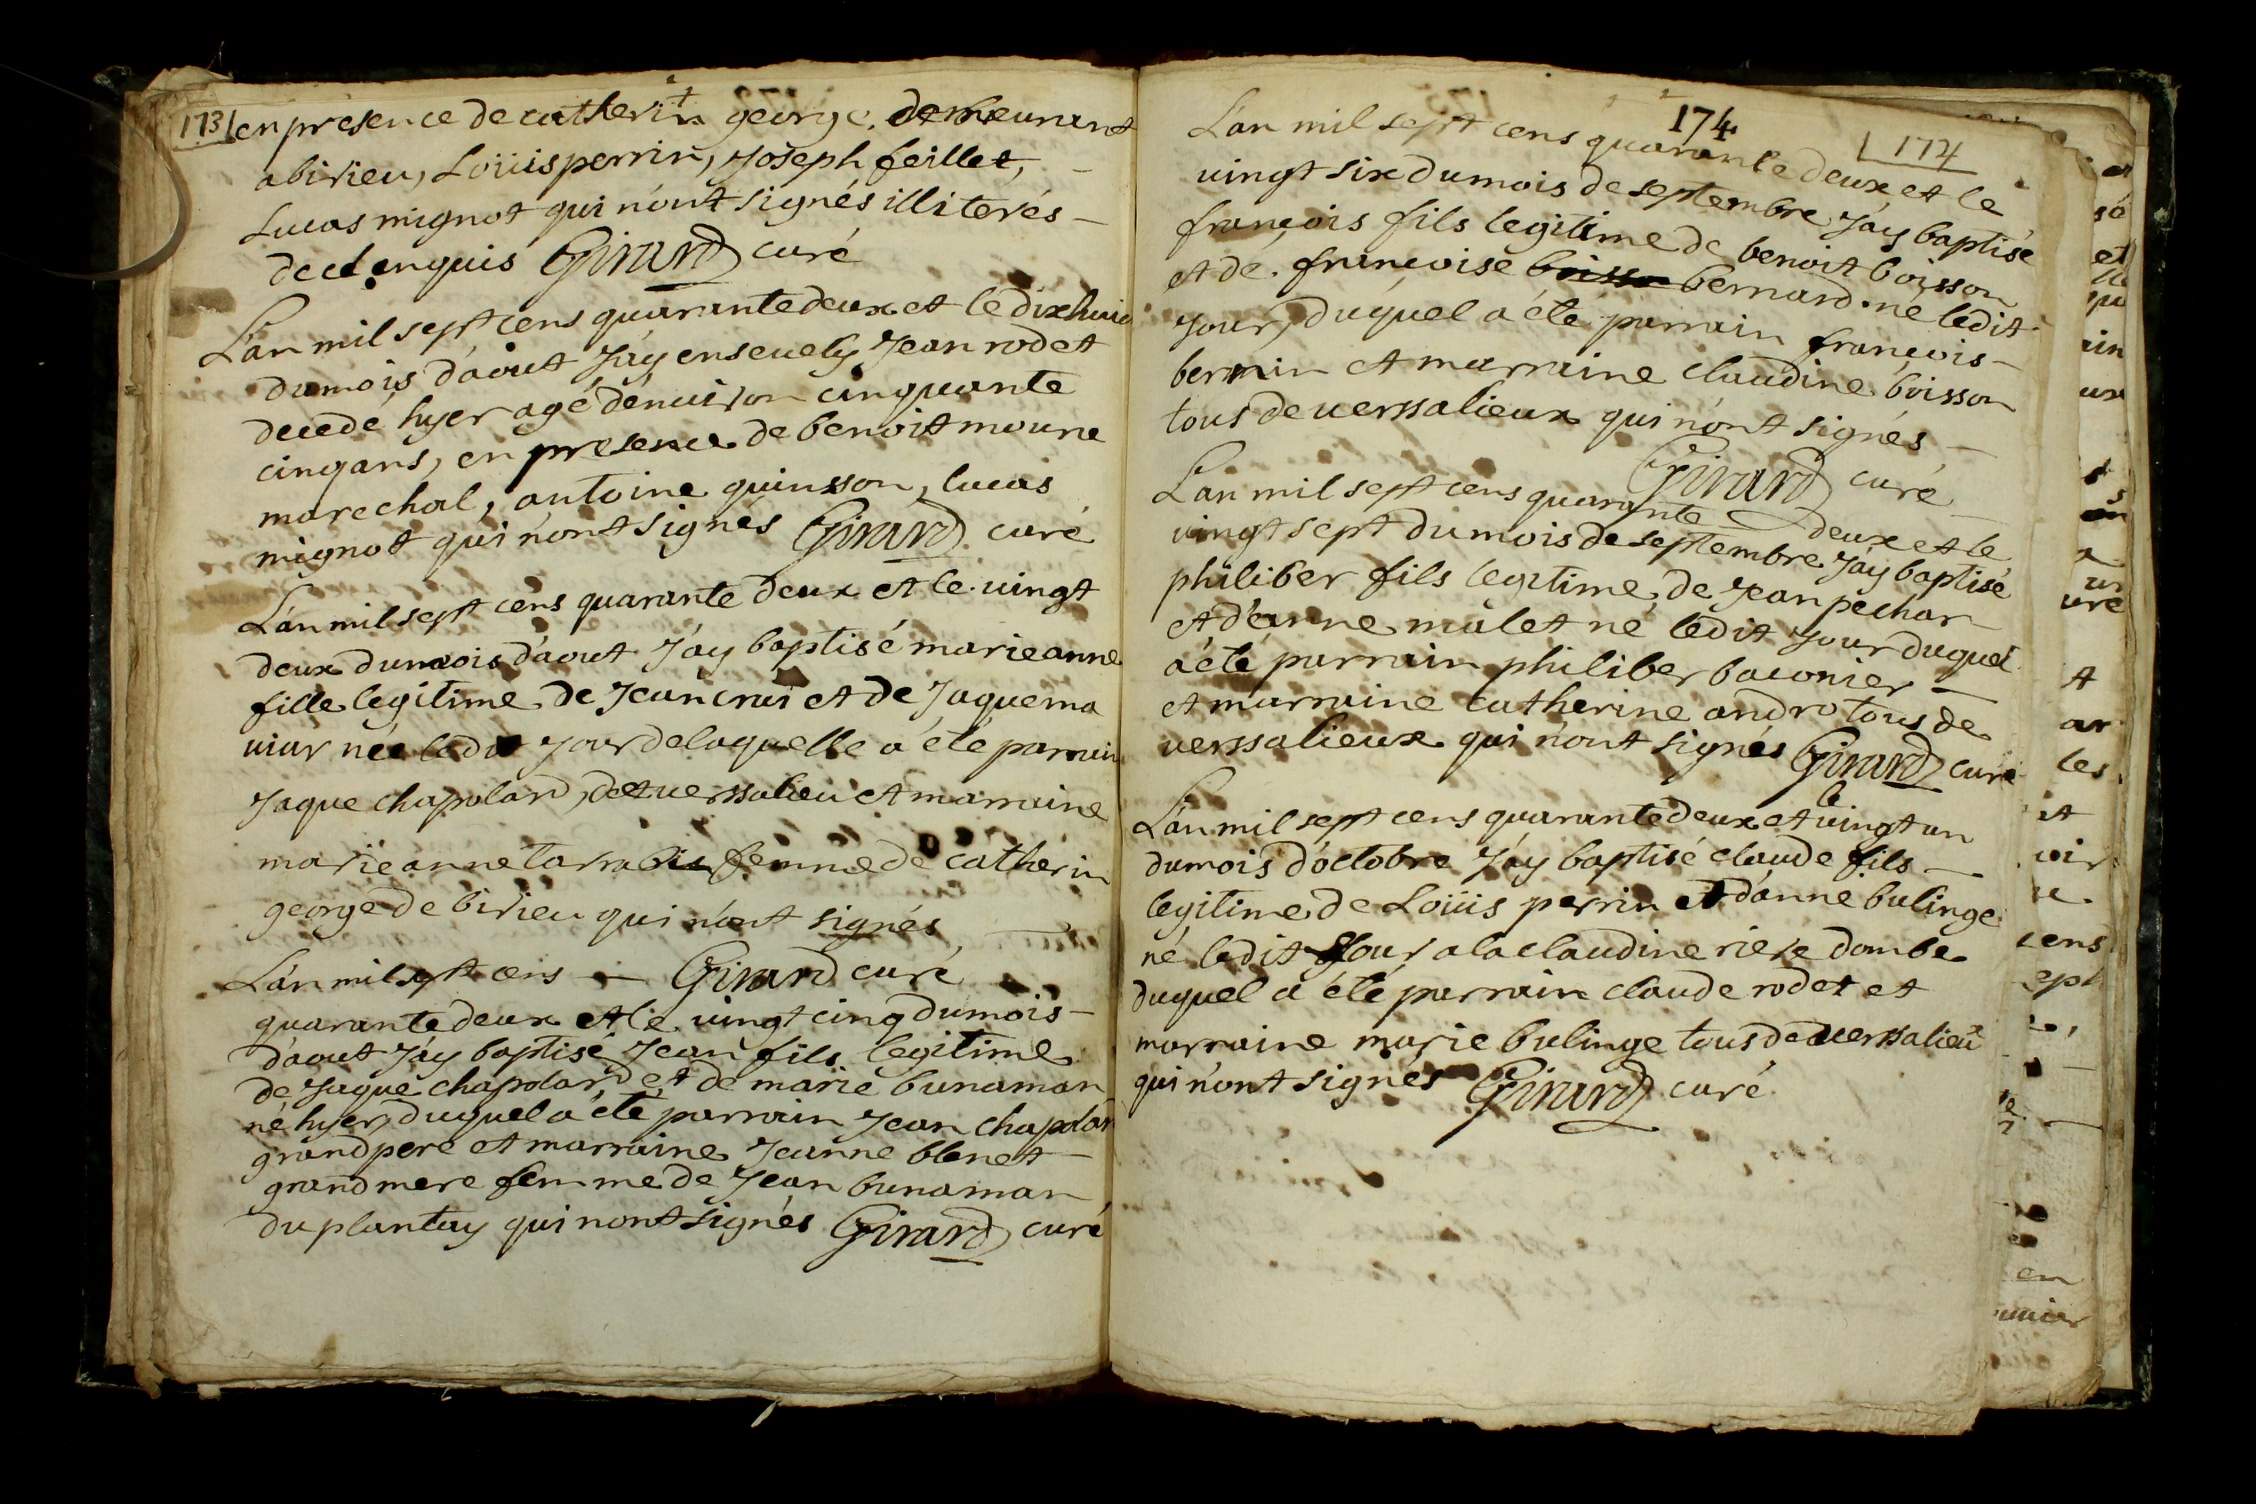 173
en presence de catherin george, demeurant
a birieu, Loüis perrin, Joseph feillet,
Lucas mignot qui n'ont signés illiterés
de ce enquis Girard curé
L'an mil sept cens quarante deux et le dix huit
du mois d'aout J'ay ensevely Jean rodet
decedé hyer agé d'environ cinquante
cinq ans, en presence de benoit moune
marechal, antoine quinsson, lucas
mignot qui n'ont signés Girard curé
L'an mil sept cens quarante deux et le vingt
deux du mois d'aout J'ay baptisé marie anne
fille legitime de Jean cras et de Jaquema
viar née ledit jour de laquelle a été parrain
Jaque chapolard, de verssalieu et marraine
marie anne femme de catherin
george de birieu qui n'ont signés
L'an mil sept cens Girard curé
quarante deux et le vingt cinq du mois
d'aout J'ay baptisé Jean fils legitime
de Jaque chapolard et de marie bunaman
né hyer, duquel a été parrain Jean chapolar
grand pere et marraine Jeanne blenet
grand mere femme de Jean bunaman
du plantay qui n'ont signés Girard curé
174
174
L'an mil sept cens quarante deux et le
vingt six du mois de septembre J'ay baptisé
françois fils legitime de benoit boisson
et de françoise boisson bernard né ledit
jour, duquel a été parrain françois
bernin et marraine claudine boisson
tous de verssalieux qui n'ont signés
Girard curé
L'an mil sept cens quarante deux et le
vingt sept du mois de septembre J'ay baptisé
philiber fils legitime de Jean pechar
et d'anne mulet né ledit jour duquel
a été parrain philiber baconier
et marraine catherine andro tous de
verssalieux qui n'ont signés Girard curé
L'an mil sept cens quarante deux et le vingt un
du mois d'octobre J'ay baptisé claude fils
legitime de Loüis perrin et d'anne bulinge
né ledit jour a la claudine riere dombe
duquel a été parrain claude rodet et
marraine marie bulinge tous de verssalieu
qui n'ont signés Girard curé